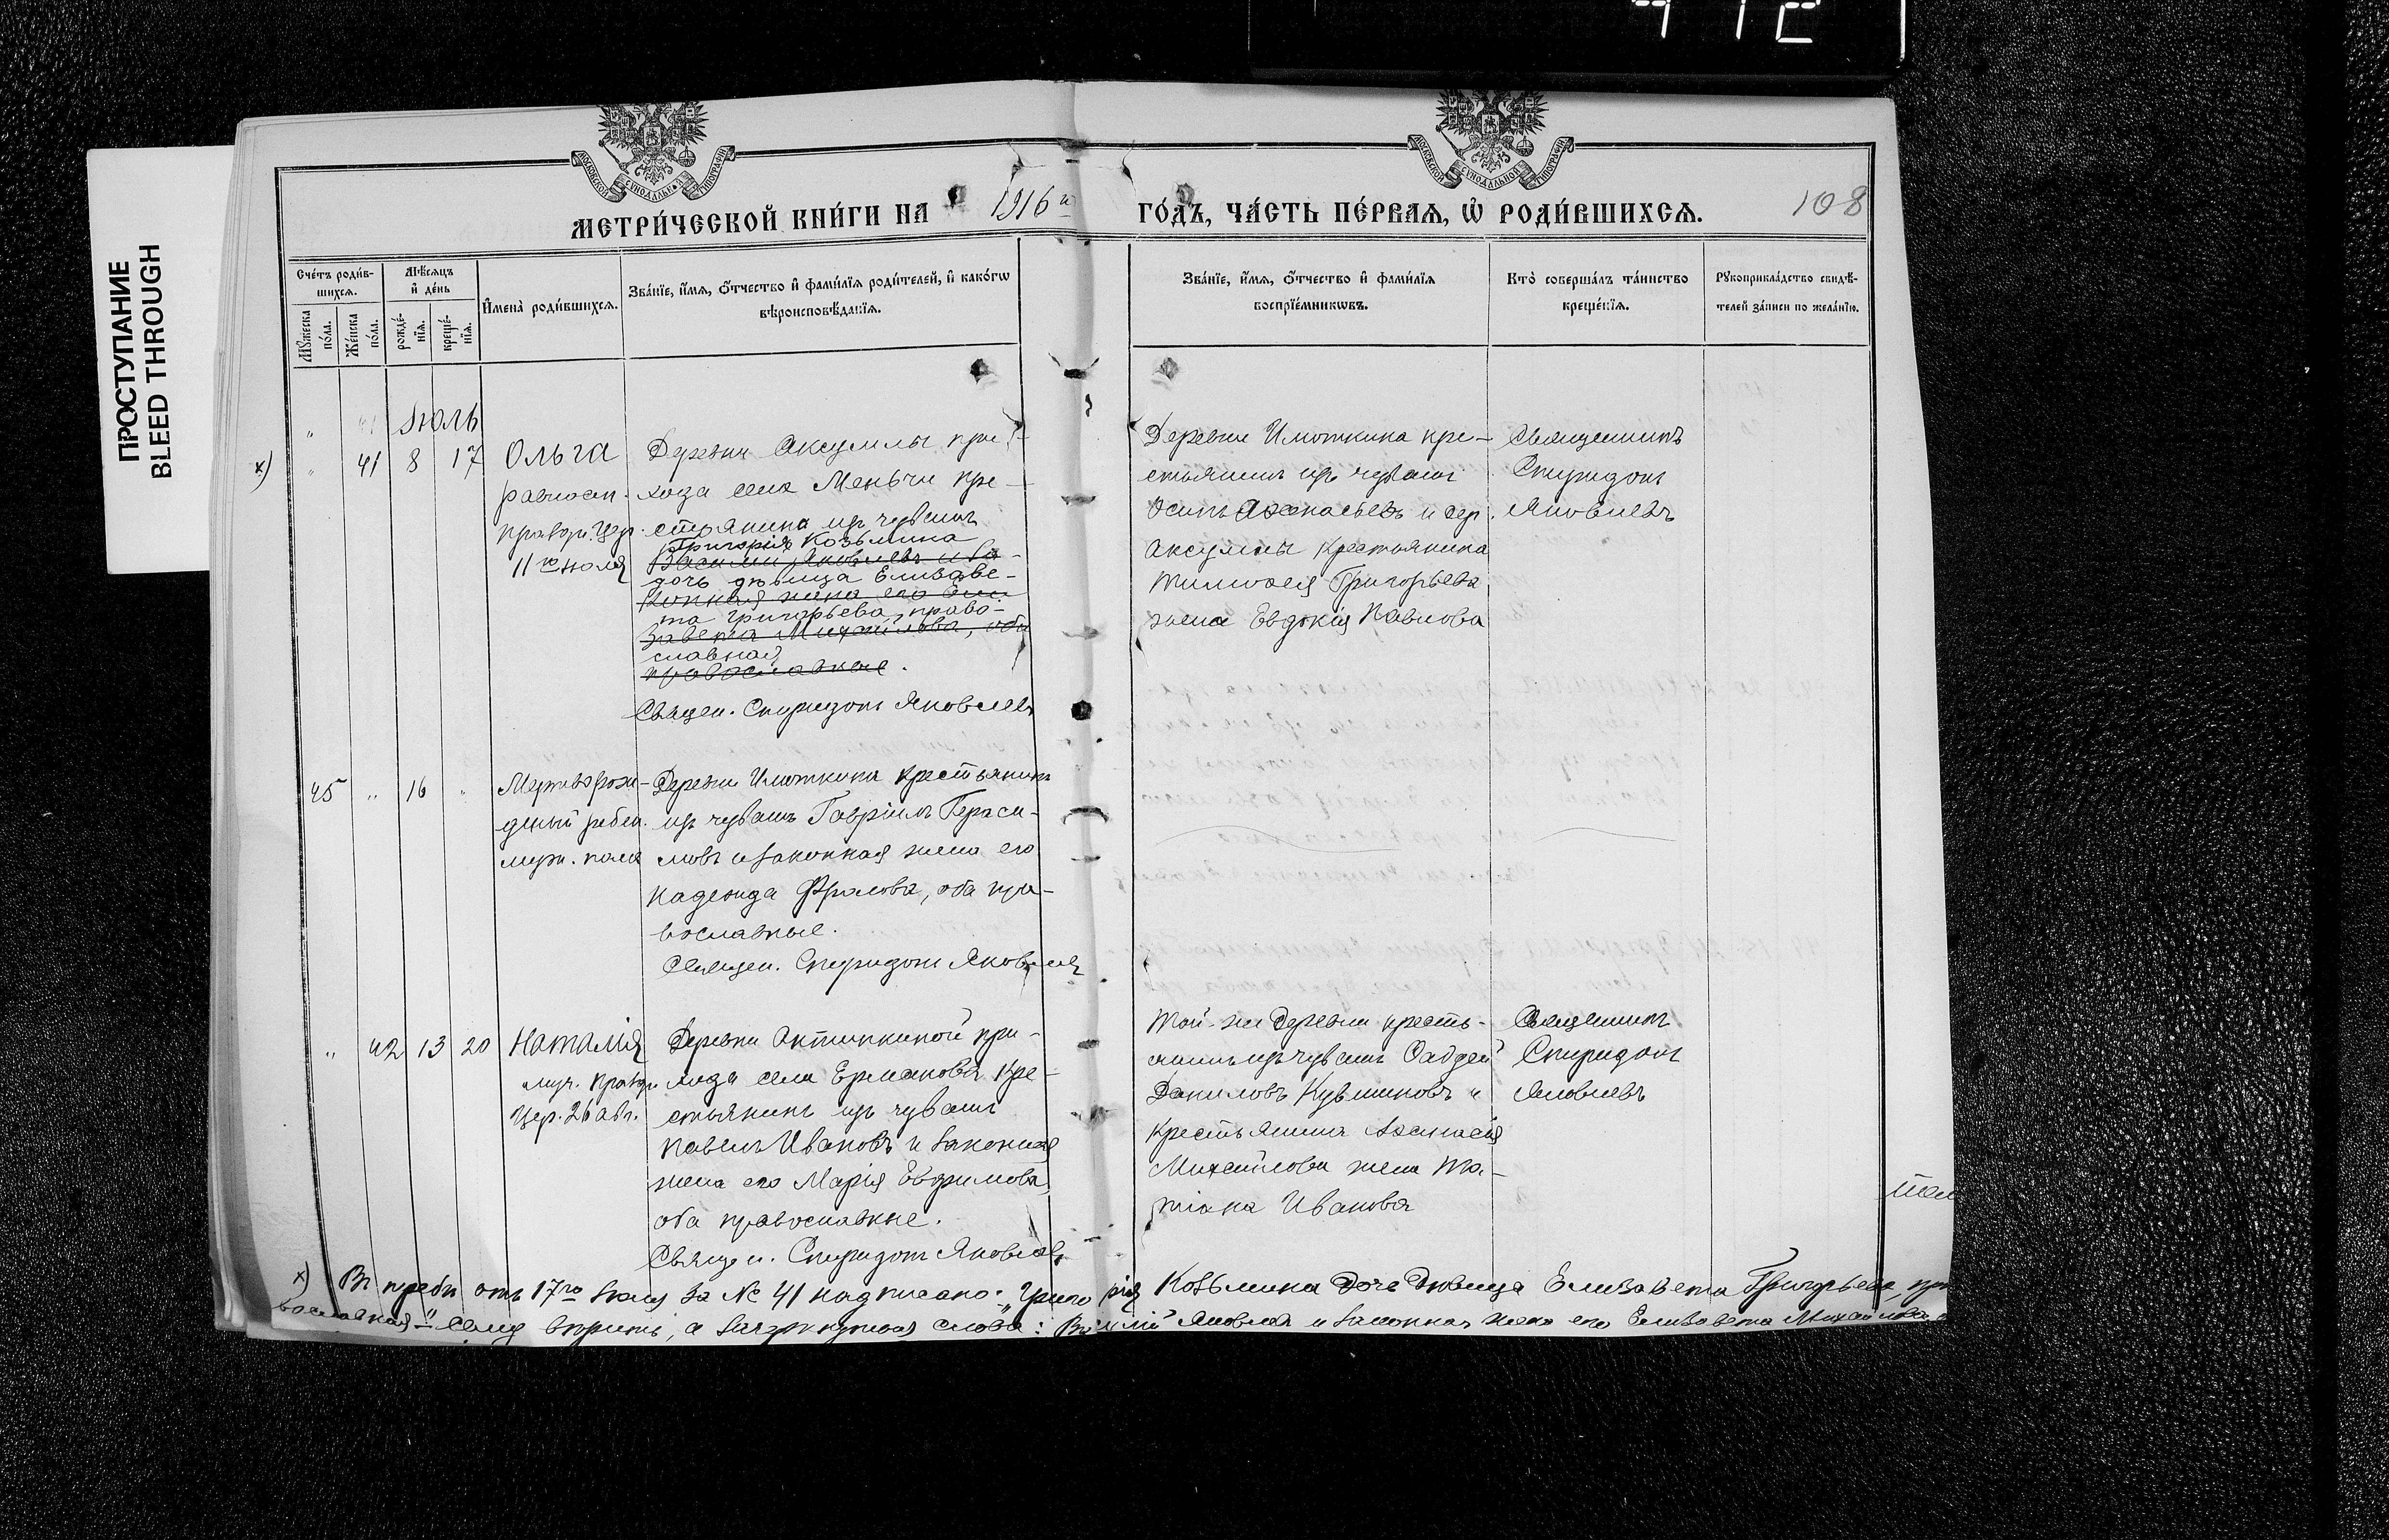 412
ПРОСТУПАНИЕ
BLEED THROUGH
МОСКОВСКОЙ СѴНОДАЛЬНОЙ ТИПОГРАФІИ
МОСКОВСКОЙ СѴНОДАЛЬНОЙ ТИПОГРАФІИ
МЕТРИ́ЧЕСКОЙ КНИ́ГИ НА 1916й ГО́ДЪ, ЧА́СТЬ ПЕ́РВАѦ, Ѡ҆ РОДИ́ВШИХСѦ.
108
Сче́тъ роди́в-
шихсѧ.
Мꙋ́жеска по́ла.
Же́нска по́ла.
Мѣ́сѧцъ и҆ де́нь
рожде́-нїѧ.
креще́-нїѧ.
И҆мена̀ роди́вшихсѧ.
Зва́нїе, и҆́мѧ, ѻ҆́тчество и҆ фами́лїѧ роди́телей, и҆ како́гѡ
вѣроисповѣ́данїѧ.
Зва́нїе, и҆́мѧ, ѻ҆́тчество и҆ фами́лїѧ
воспрїе́мникѡвъ.
Кто̀ соверша́лъ та́инство
креще́нїѧ.
Рꙋкоприкла́дство свидѣ́-
телей за́писи по жела́нїю.
" 41 Іюль
х) " 41 8 17 Ольга
равноап.
правосл. Цер.
11го іюля
Деревни Аксумлы при-
хода села Меньчи кре-
стьянина изъ чувашъ
Григорія Козьмина
Василій Яковлевъ и за-
дочь дѣвица Елизаве-
конная жена его Ели-
та Григорьева, право-
завета Михайлова, оба
славная
православные.
Священ. Спиридонъ Яковлевъ
Деревни Ишоткина кре-
стьянинъ изъ чувашъ
Осипъ Аѳанасьевъ и дер.
Аксумлы крестьянина
Тимоѳея Григорьева
жена Евдокія Павлова
Священникъ
Спиридонъ
Яковлевъ
45 " 16 "
Мертворож-
денный ребен.
муж. пола
Деревни Ишоткина крестьянинъ
изъ чувашъ Гавріилъ Гераси-
мовъ и законная жена его
Надежда Фролова, оба пра-
вославные.
Священ. Спиридонъ Яковлевъ
" 42 13 20 Наталія
муч. правосл.
Цер. 26 авг.
Деревни Антипкиной при-
хода села Ермакова кре-
стьянинъ изъ чувашъ
Павелъ Ивановъ и законная
жена его Марія Евфимова,
оба православные.
Священ. Спиридонъ Яковлевъ
Той-же деревни кресть-
янинъ изъ чувашъ Ѳаддей
Даниловъ Кувшиновъ и
крестьянина Аѳанасія
Михайлова жена Та-
тіана Иванова
Священникъ
Спиридонъ
Яковлевъ
х) Въ требн отъ 17го Іюля за № 41 надписано: "Григорія Козьмина дочь дѣвица Елизавета Григорьева, пра
вославная" – вѣрить, а зачеркнутыя слова: Василій Яковлевъ и законная жена его Елизавета Михайлова о